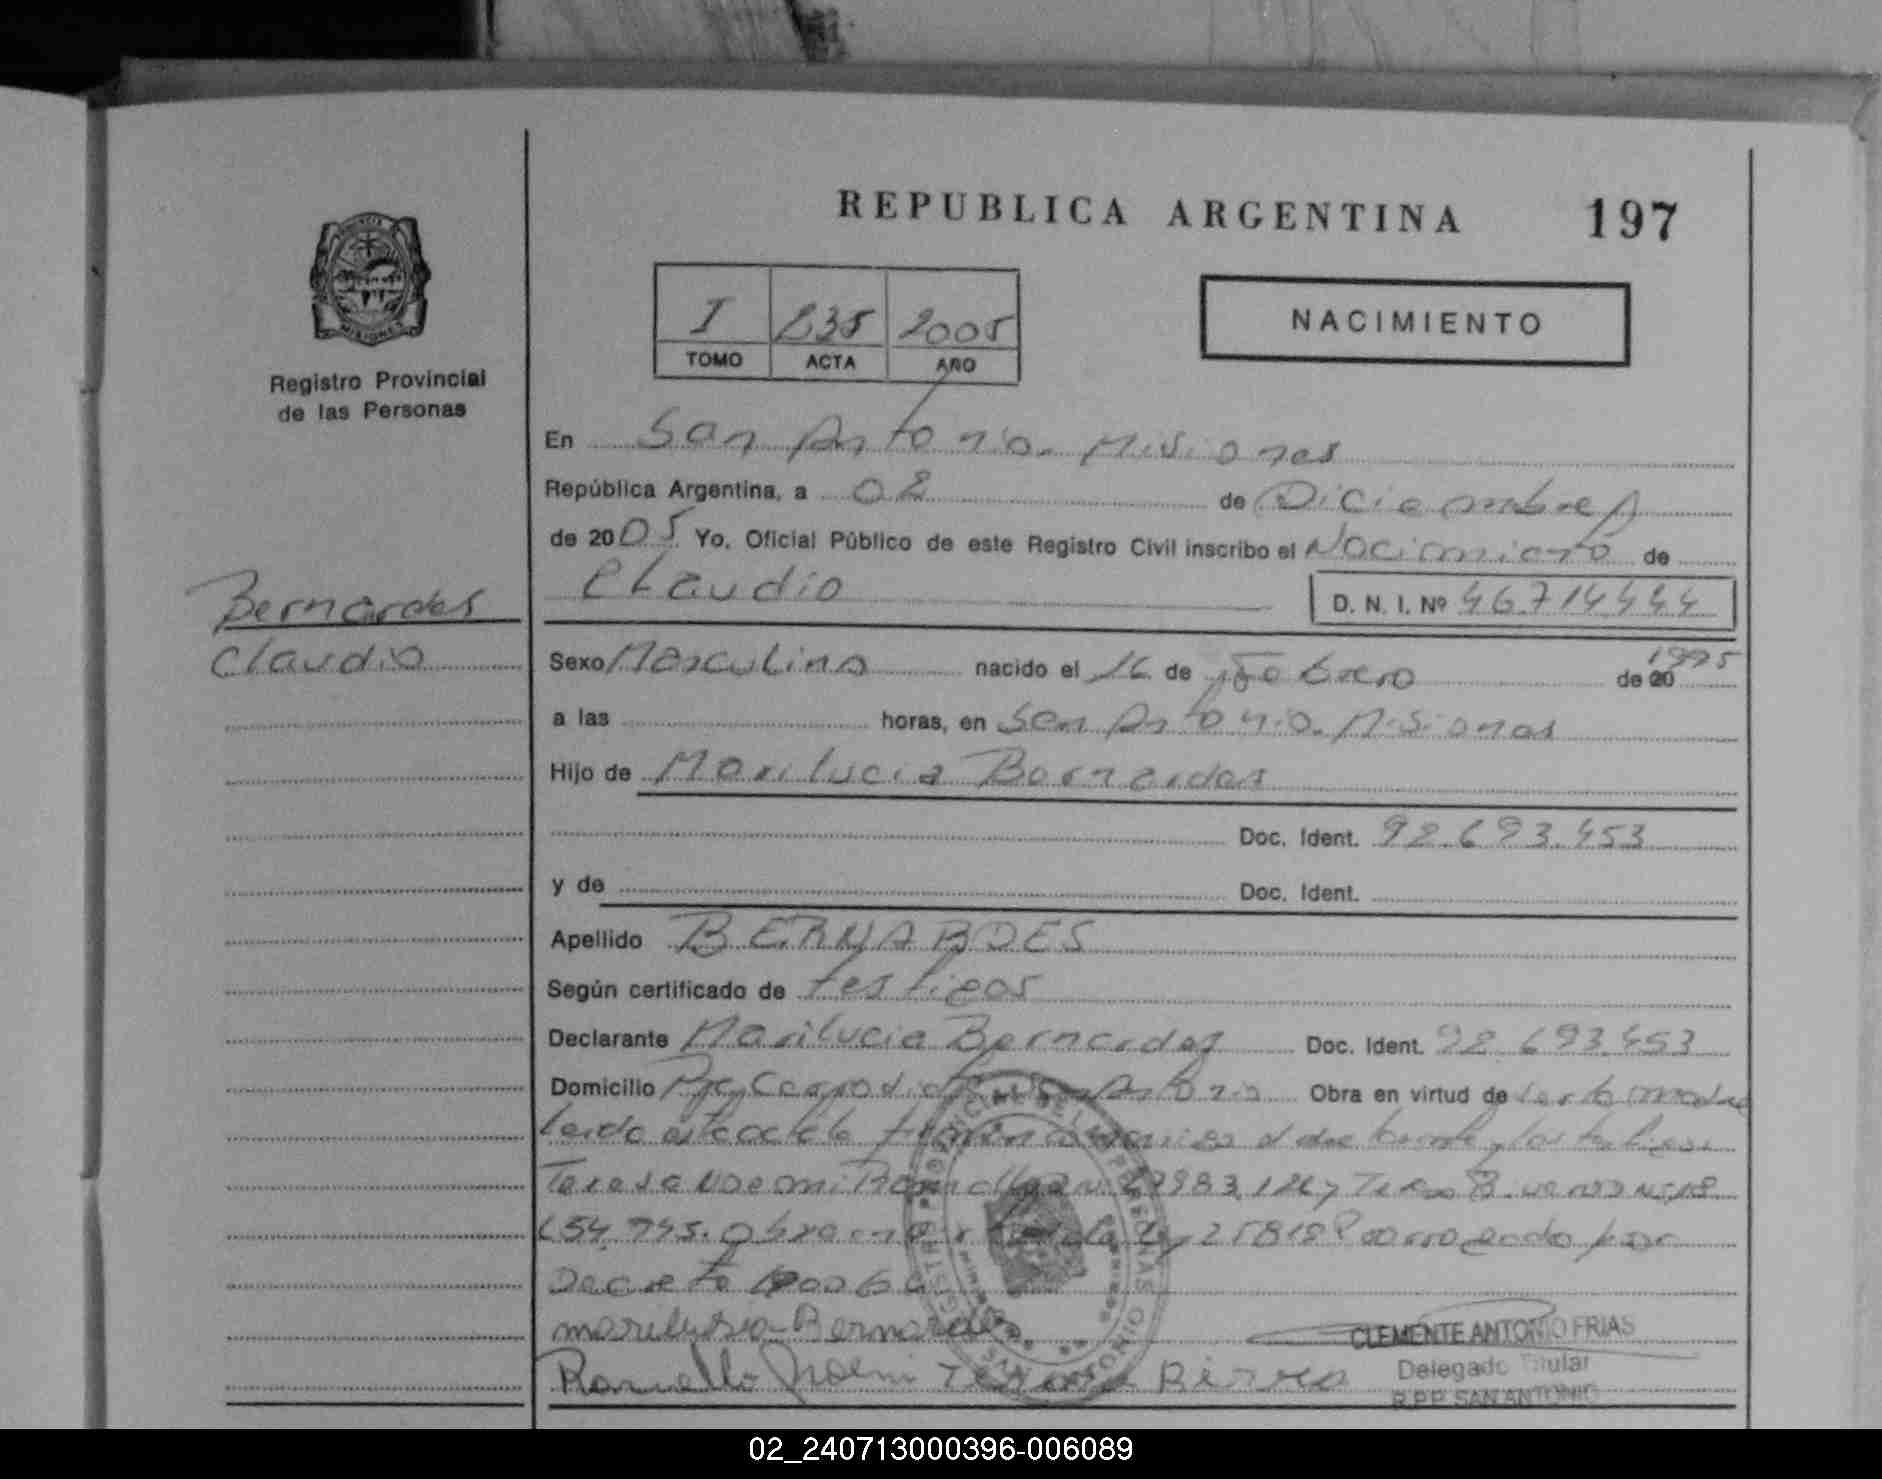 REPUBLICA ARGENTINA 197
NACIMIENTO
I 235 2005
TOMO ACTA AÑO
MISIONES
Registro Provincial
de las Personas
En San Antonio. Misiones
República Argentina, a 02 de Diciembre
de 2005 Yo, Oficial Público de este Registro Civil inscribo el Nacimiento de
Claudio D. N. I. Nº 46714444
Bernardes
Claudio
Sexo Masculino nacido el 16 de Febrero de 20 1995
a las horas, en San Antonio. Misiones
Hijo de Marilucia Bernardes
Doc. Ident. 92.693.453
y de Doc. Ident.
Apellido BERNARDES
Según certificado de testigos
Declarante Marilucia Bernardes Doc. Ident. 92.693.453
Domicilio San Antonio Obra en virtud de
Teresa Noemi
25818 prorrogado por
Decreto
Bernardes
Noemi
CLEMENTE ANTONIO FRIAS
Delegado Titular
R.P.P. SAN ANTONIO
02_240713000396-006089